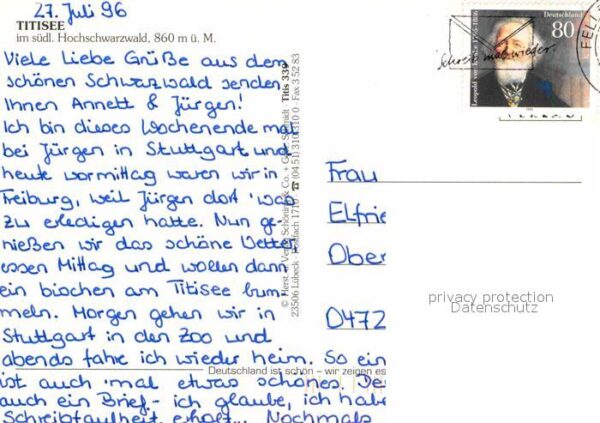 27. Juli 96
TITISEE
im südl. Hochschwarzwald, 860 m ü. M.
Viele Liebe Grüße aus dem
schönen Schwarzwald senden
Ihnen Annett & Jürgen!
Ich bin dieses Wochenende mal
bei Jürgen in Stuttgart und
heute vormittag waren wir in
Freiburg, weil Jürgen dort 'was
zu erledigen hatte. Nun ge-
nießen wir das schöne Wetter,
essen Mittag und wollen dann
ein bisschen am Titisee bum-
meln. Morgen gehen wir in
Stuttgart in den Zoo und
abends fahre ich wieder heim. So ein
ist auch 'mal etwas schönes. De
auch ein Brief - ich glaube, ich habe
Schreibfaulheit erholt... Nochmals
Deutschland ist schön – wir zeigen es
Schöning & Co. + Schmidt Titis 339
23506 Lübeck Postfach 1710 ☎ (04 51) 310310 0 Fax 3 52 83
Deutschland
80
Leopold
schreib mal wieder
Frau
Elfrie
Ober
0472
privacy protection
Datenschutz